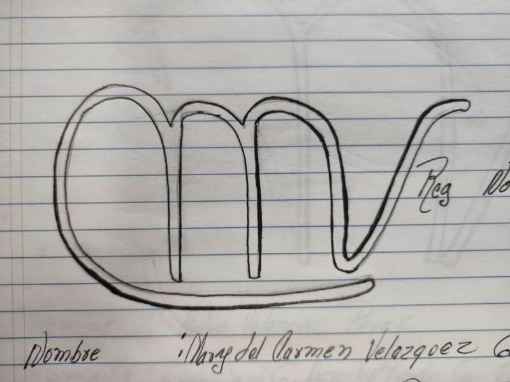 CMV
Reg No
Nombre Mary del Carmen Velazquez G